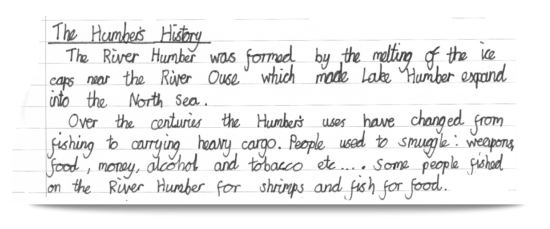 The Humber's History
The River Humber was formed by the melting of the ice
caps near the River Ouse which made Lake Humber expand
into the North Sea.
Over the centuries the Humber's uses have changed from
fishing to carrying heavy cargo. People used to smuggle: weapons,
food, money, alcohol and tobacco etc..... Some people fished
on the River Humber for shrimps and fish for food.